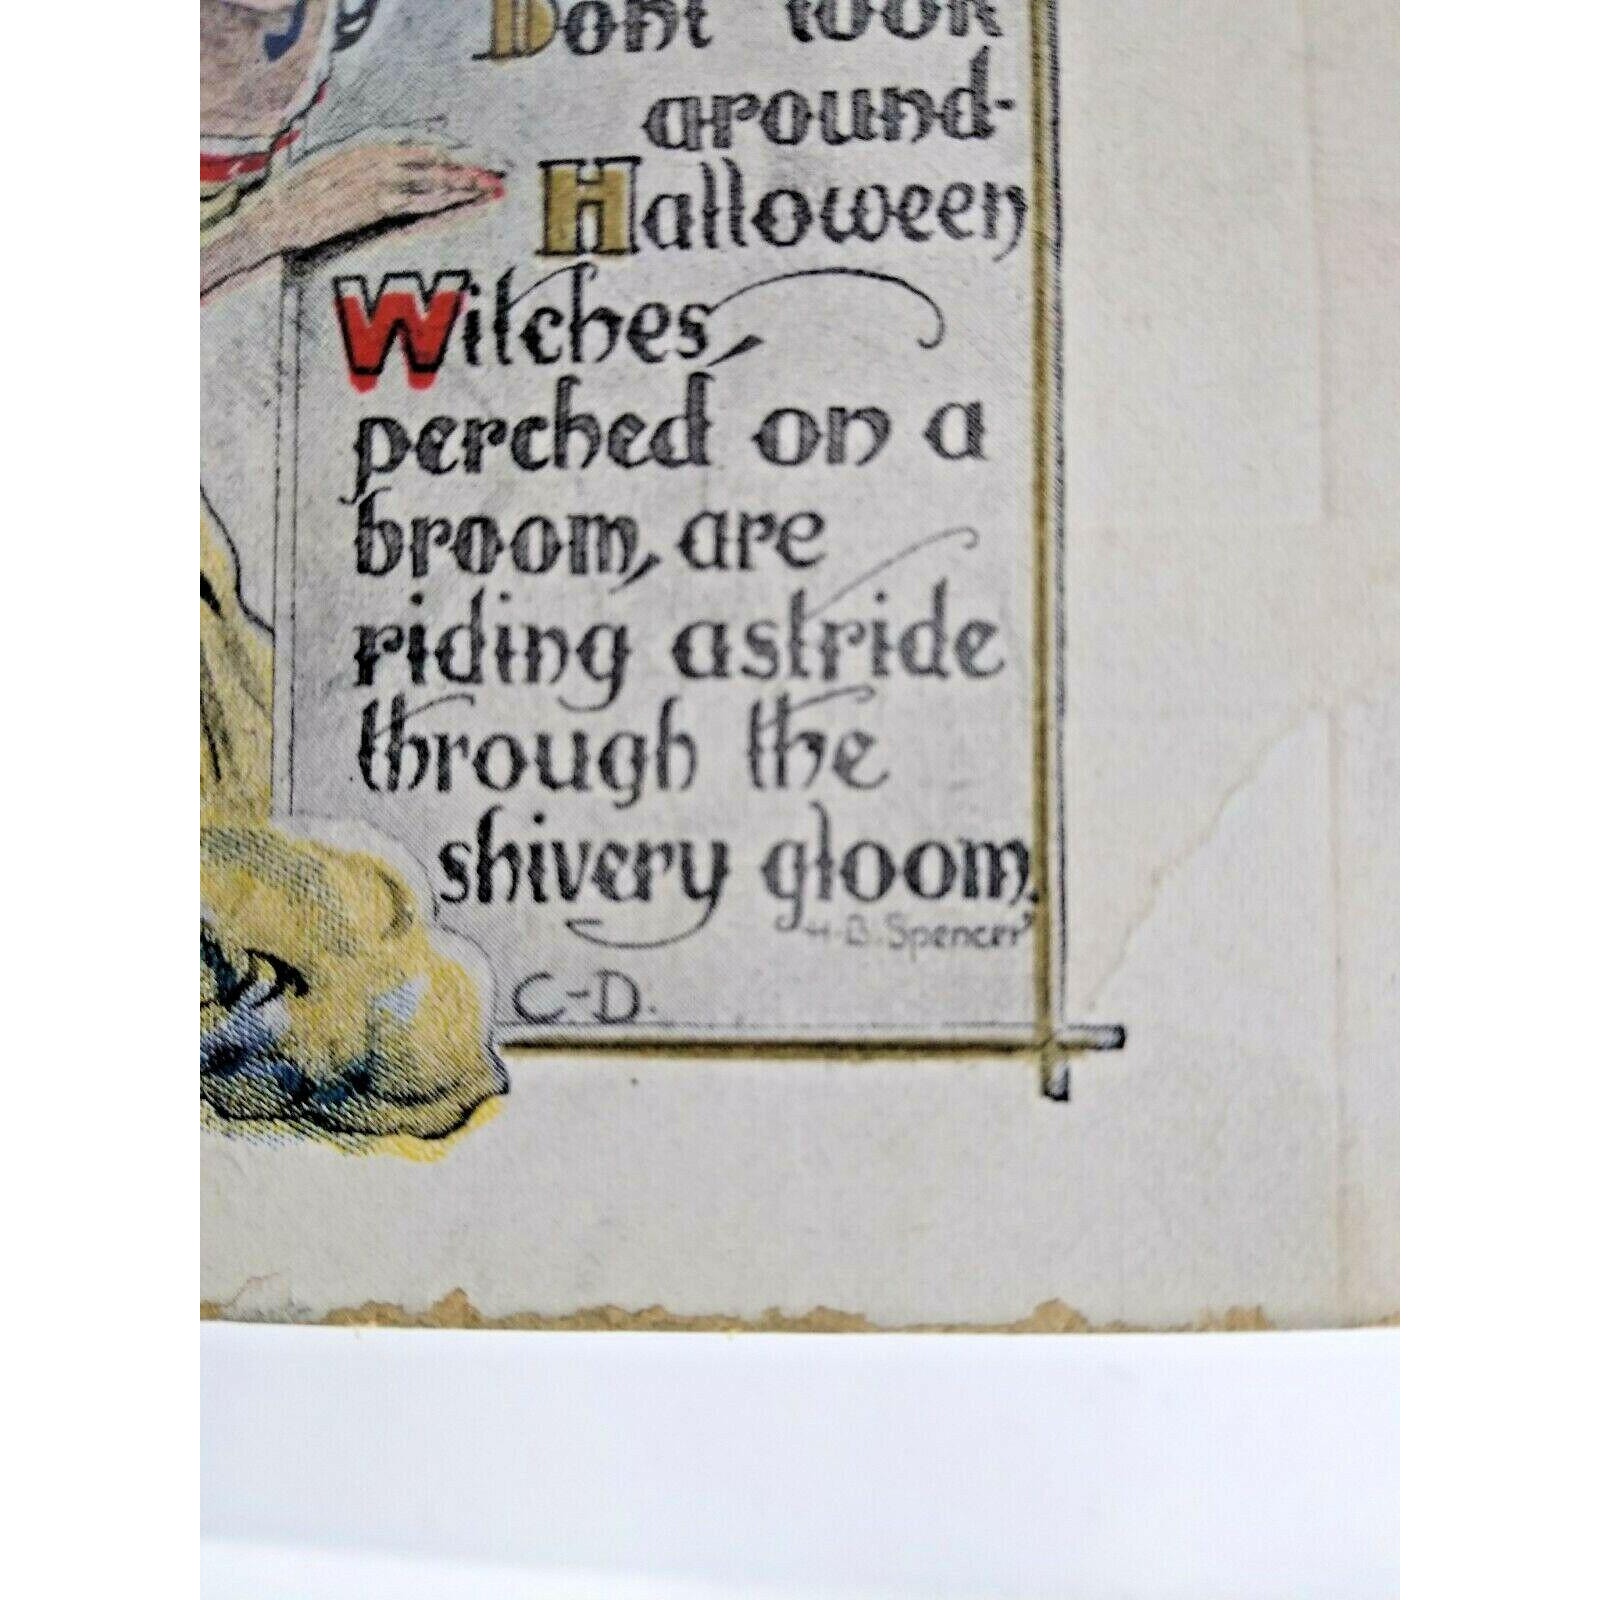 Dont look
around-
Halloween
Witches,
perched on a
broom, are
riding astride
through the
shivery gloom.
H-B. Spencer
C-D.